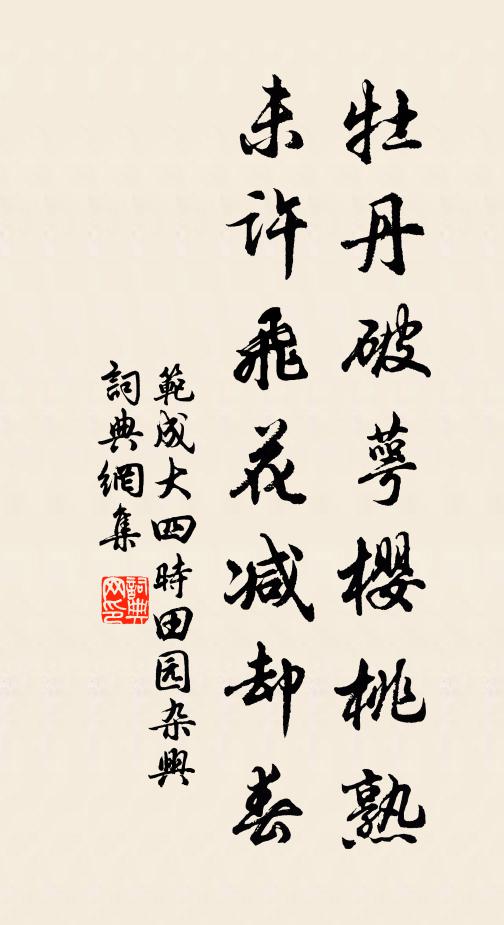 牡丹破萼櫻桃熟
未许飛花减却春
範成大四時田园杂興
詞典網集
詞典
网印